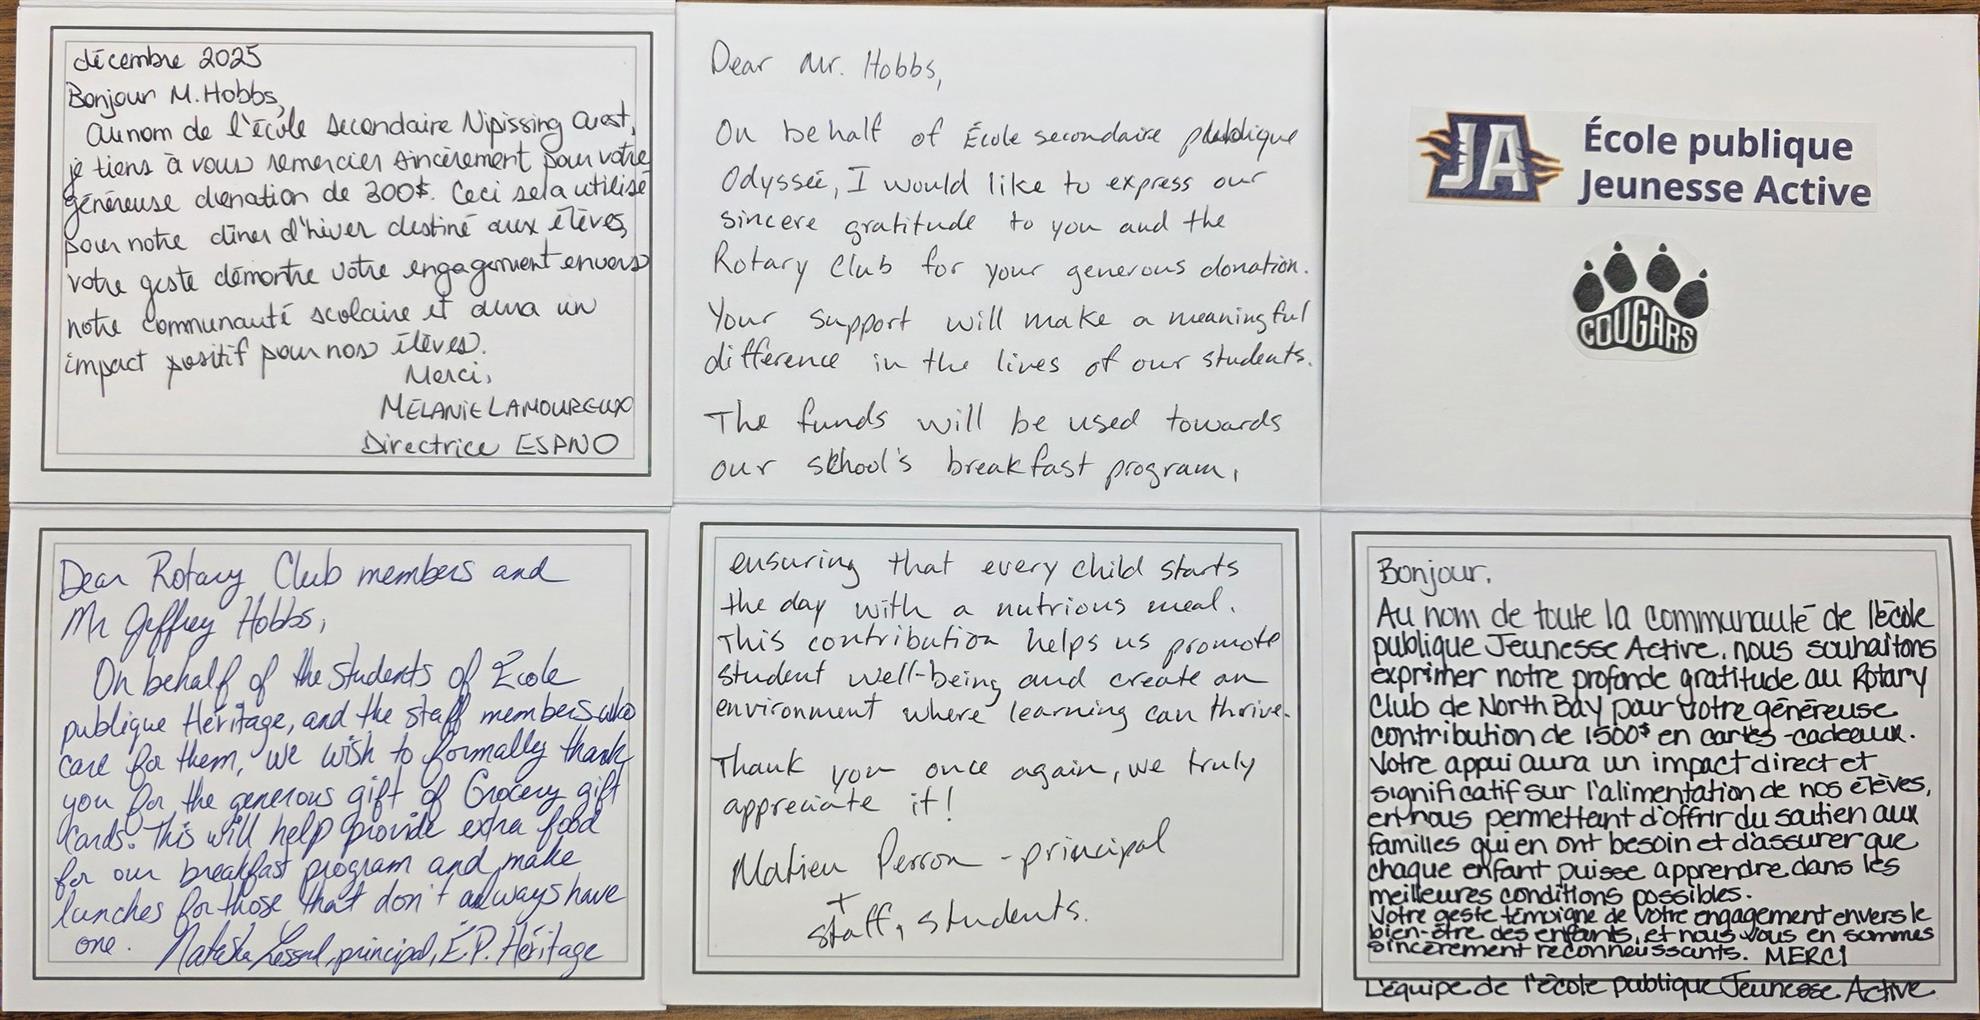 décembre 2025
Bonjour M. Hobbs,
Au nom de l'école secondaire Nipissing Ouest,
je tiens à vous remercier sincèrement pour votre
généreuse donation de 300$. Ceci sera utilisé
pour notre dîner d'hiver destiné aux élèves,
votre geste démontre votre engagement envers
notre communauté scolaire et aura un
impact positif pour nos élèves.
Merci,
MÉLANIE LAMOUREUX
Directrice ESPNO
Dear Mr. Hobbs,
On behalf of École secondaire publique
Odyssée, I would like to express our
sincere gratitude to you and the
Rotary Club for your generous donation.
Your support will make a meaningful
difference in the lives of our students.
The funds will be used towards
our school's breakfast program,
ensuring that every child starts
the day with a nutrious meal.
This contribution helps us promote
student well-being and create an
environment where learning can thrive.
Thank you once again, we truly
appreciate it!
Matieu Perron - principal
+
staff, students.
JA
École publique
Jeunesse Active
COUGARS
Dear Rotary Club members and
Mr Jeffrey Hobbs,
On behalf of the students of École
publique Héritage, and the staff members who
care for them, we wish to formally thank
you for the generous gift of Grocery gift
Cards. This will help provide extra food
for our breakfast program and make
lunches for those that don't always have
one.
principal, É.P. Héritage
Bonjour,
Au nom de toute la communauté de l'école
publique Jeunesse Active, nous souhaitons
exprimer notre profonde gratitude au Rotary
Club de North Bay pour votre généreuse
contribution de 1500$ en cartes-cadeaux.
Votre appui aura un impact direct et
significatif sur l'alimentation de nos élèves,
en nous permettant d'offrir du soutien aux
familles qui en ont besoin et d'assurer que
chaque enfant puisse apprendre dans les
meilleures conditions possibles.
Votre geste témoigne de votre engagement envers le
bien-être des enfants, et nous vous en sommes
sincèrement reconnaissants. MERCI
L'équipe de l'école publique Jeunesse Active